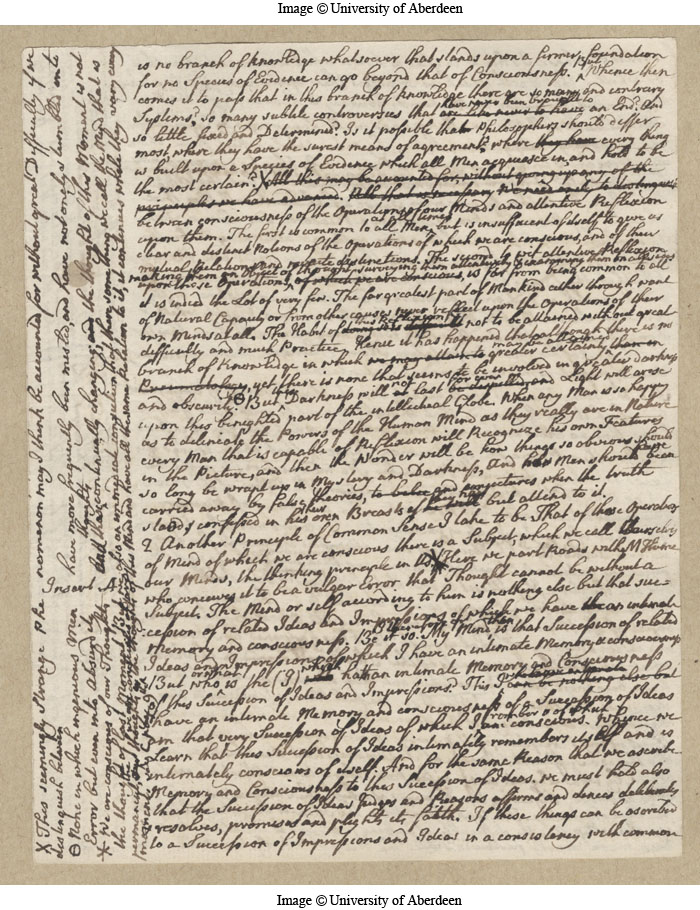 Image © University of Aberdeen
is no branch of knowledge whatsoever that stands upon a firmer foundation
for no Species of Evidence can go beyond that of Consciousness. But Whence then
comes it to pass that in this branch of knowledge there are so many and contrary
Systems, So many subtile controversies that have never been brought to are like never to have an End, And
so little fixed and Determined? Is it possible that Philosophers should differ
most, where they have the surest means of agreement, where they have every thing
is built upon a Species of Evidence which all Men acquiesce in, and hold to be
the most certain? X All this may be accounted for, without going up any of the
principles we have advanced.
between consciousness of the Operations of our Minds and attentive Reflexion
upon them. The first is common to all Men, but is insufficient of itself to give us
clear and distinct Notions of the Operations of which we are conscious, and of their
mutual Relations, and minute distinctions. The second viz attentive Reflexion
upon those Operations, making them an Object of thought, surveying them attentively & examining them on all sides of which we are conscious, is far from being common to all
it is indeed the Lot of very few. The far greatest part of Mankind either through want
of Natural Capacity or from other causes never reflect upon the Operations of their
own Minds at all. The Habit of this Reflexion is not to be attained without great
difficulty and much Practice, Hence it has happened that although there is no
branch of knowledge in which we may attain to greater certainty than in
Pneumatology, yet there is none that seems to be involved in greater darkness
and obscurity. ⊖ But Darkness will not at last and Light will arise
upon this benighted part of the intellectual Globe. When any Man is so happy
as to delineate the Powers of the Human Mind as they really are in Nature
every Man that is capable of Reflexion will Recognize his own Features
in the Picture, and then the Wonder will be how things so obvious should
so long be wrapt up in Mystery and Darkness, And how Men should be
carried away by False theories, and conjectures when the truth
stands confessed in his own Breast if they had but attend to it,
2 Another Principle of Common Sense I take to be That of those Operations
of Mind of which we are conscious there is a Subject, which we call
our Minds, the thinking principle in us ✶ Here we part Roads with Mr Hume
who conceives it to be a vulgar Error that Thought cannot be without a
Subject. The Mind or self according to him is nothing else but that suc-
cession of related Ideas and Impressions of which we have an intimate
Memory and consciousness. Be it so. My Mind is that Succession of related
Ideas and Impressions of which I have an intimate Memory & consciousness
But who or what is the (I) that hath an intimate Memory and Consciousness
of this Succession of Ideas and Impressions? This I can be nothing else but
have an intimate Memory and consciousness of a Succession of Ideas
I am that very Succession of Ideas of which I remember & of which I am conscious. Whence we
learn that this Succession of Ideas intimately remembers itself and is
intimately conscious of itself. And for the same Reason that we ascribe
Memory and Consciousness to this Succession of Ideas. we must hold also
that the Succession of Ideas Judges and Reasons affirms and denies deliberately
resolves, promises and plights its faith. If these things can be ascribed
to a Succession of Impressions and Ideas in a consistency with common
X This seemingly strange Phenomenon may I think be accounted for without great Difficulty if we
distinguish between
⊖ Nohe in which ingenious Men have more frequently been misled and have not only stumbled into
Error but even into Absurdity
Insert A
✶ We are conscious of our Thoughts and the thought of this Moment is not
the thought of last Moment But
Image © University of Aberdeen